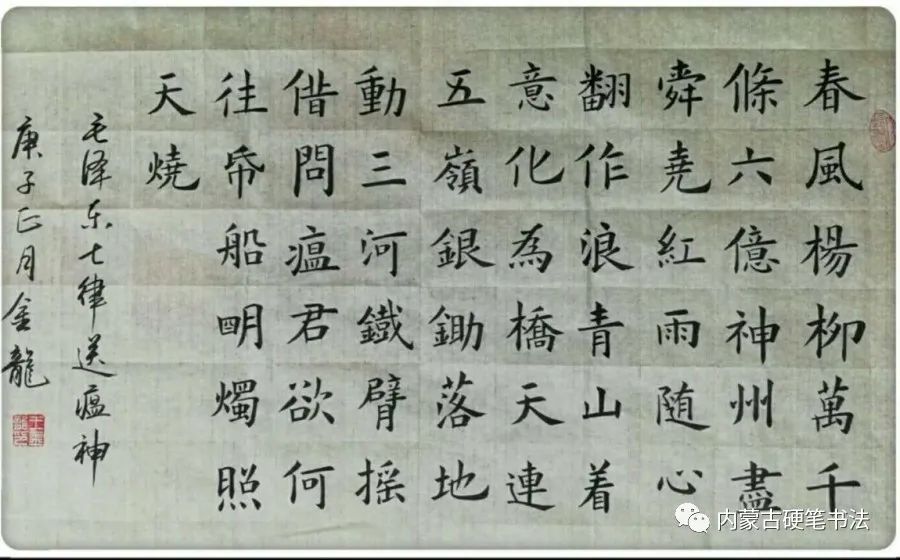 春風楊柳萬千
條六億神州盡
舜堯紅雨随心
翻作浪青山着
意化為橋天連
五嶺銀鋤落地
動三河鐵臂摇
借問瘟君欲何
往帋船明燭照
天燒
毛泽东七律送瘟神
庚子正月金龍
内蒙古硬笔书法